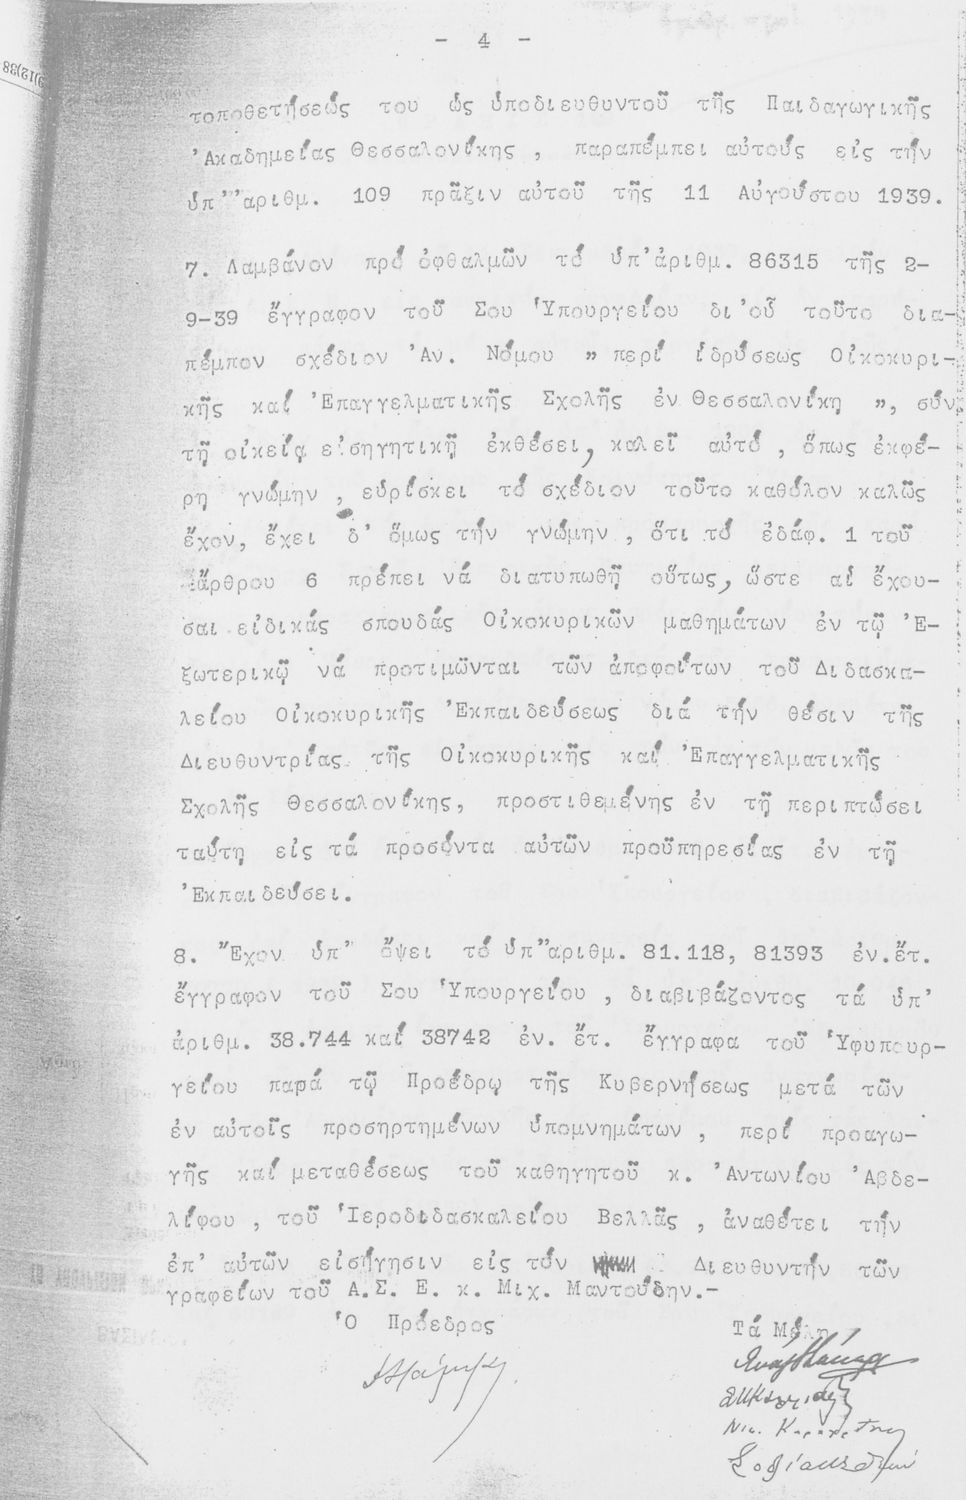 - 4 -
τοποθετήσεώς του ὡς ὑποδιευθυντοῦ τῆς Παιδαγωγικῆς
'Ακαδημείας Θεσσαλονίκης , παραπέμπει αὐτούς εἰς τήν
ὑπ''αριθμ. 109 πρᾶξιν αὐτοῦ τῆς 11 Αὐγούστου 1939.
7. Λαμβάνον πρό ὀφθαλμῶν τό ὑπ'ἀριθμ. 86315 τῆς 2-
9-39 ἔγγραφον τοῦ Σου Ὑπουργείου δι'οὗ τοῦτο δια-
πέμπον σχέδιον Ἀν. Νόμου " περί ἱδρύσεως Οἰκοκυρι-
κῆς καί Ἐπαγγελματικῆς Σχολῆς ἐν Θεσσαλονίκη ", σύν
τῇ οἰκείᾳ εἰσηγητικῇ ἐκθέσει, καλεῖ αὐτό , ὅπως ἐκφέ-
ρη γνώμην , εὑρίσκει τό σχέδιον τοῦτο καθόλον καλῶς
ἔχον, ἔχει δ' ὅμως τήν γνώμην , ὅτι τό ἐδάφ. 1 τοῦ
ἄρθρου 6 πρέπει νά διατυπωθῇ οὕτως, ὥστε αἱ ἔχου-
σαι εἰδικάς σπουδάς Οἰκοκυρικῶν μαθημάτων ἐν τῷ Ἐ-
ξωτερικῷ νά προτιμῶνται τῶν ἀποφοίτων τοῦ Διδασκα-
λείου Οἰκοκυρικῆς Ἐκπαιδεύσεως διά τήν θέσιν τῆς
Διευθυντρίας τῆς Οἰκοκυρικῆς καί Ἐπαγγελματικῆς
Σχολῆς Θεσσαλονίκης, προστιθεμένης ἐν τῇ περιπτώσει
ταύτη εἰς τά προσόντα αὐτῶν προϋπηρεσίας ἐν τῇ
Ἐκπαιδεύσει.
8. Ἔχον ὑπ' ὄψει τό ὑπ'ἀριθμ. 81.118, 81393 ἐν.ἔτ.
ἔγγραφον τοῦ Σου Ὑπουργείου , διαβιβάζοντος τά ὑπ'
ἀριθμ. 38.744 καί 38742 ἐν. ἔτ. ἔγγραφα τοῦ Ὑφυπουρ-
γείου παρά τῷ Προέδρῳ τῆς Κυβερνήσεως μετά τῶν
ἐν αὐτοῖς προσηρτημένων ὑπομνημάτων , περί προαγω-
γῆς καί μεταθέσεως τοῦ καθηγητοῦ κ. Ἀντωνίου Ἀβδε-
λίφου , τοῦ Ἱεροδιδασκαλείου Βελλᾶς , ἀναθέτει τήν
ἐπ' αὐτῶν εἰσήγησιν εἰς τόν Διευθυντήν τῶν
γραφείων τοῦ Α.Σ. Ε. κ. Μιχ. Μαντούδην.-
Ὁ Πρόεδρος
Τά Μέλη